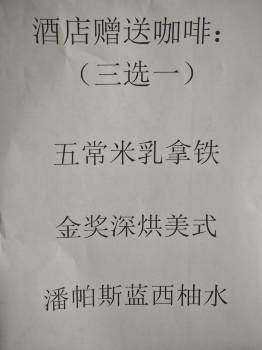 酒店赠送咖啡：
（三选一）
五常米乳拿铁
金奖深烘美式
潘帕斯蓝西柚水